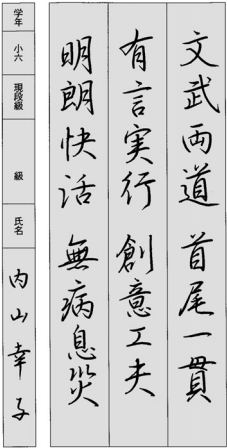 文武両道 首尾一貫
有言実行 創意工夫
明朗快活 無病息災
学年 小六 現段級 級 氏名 内山幸子